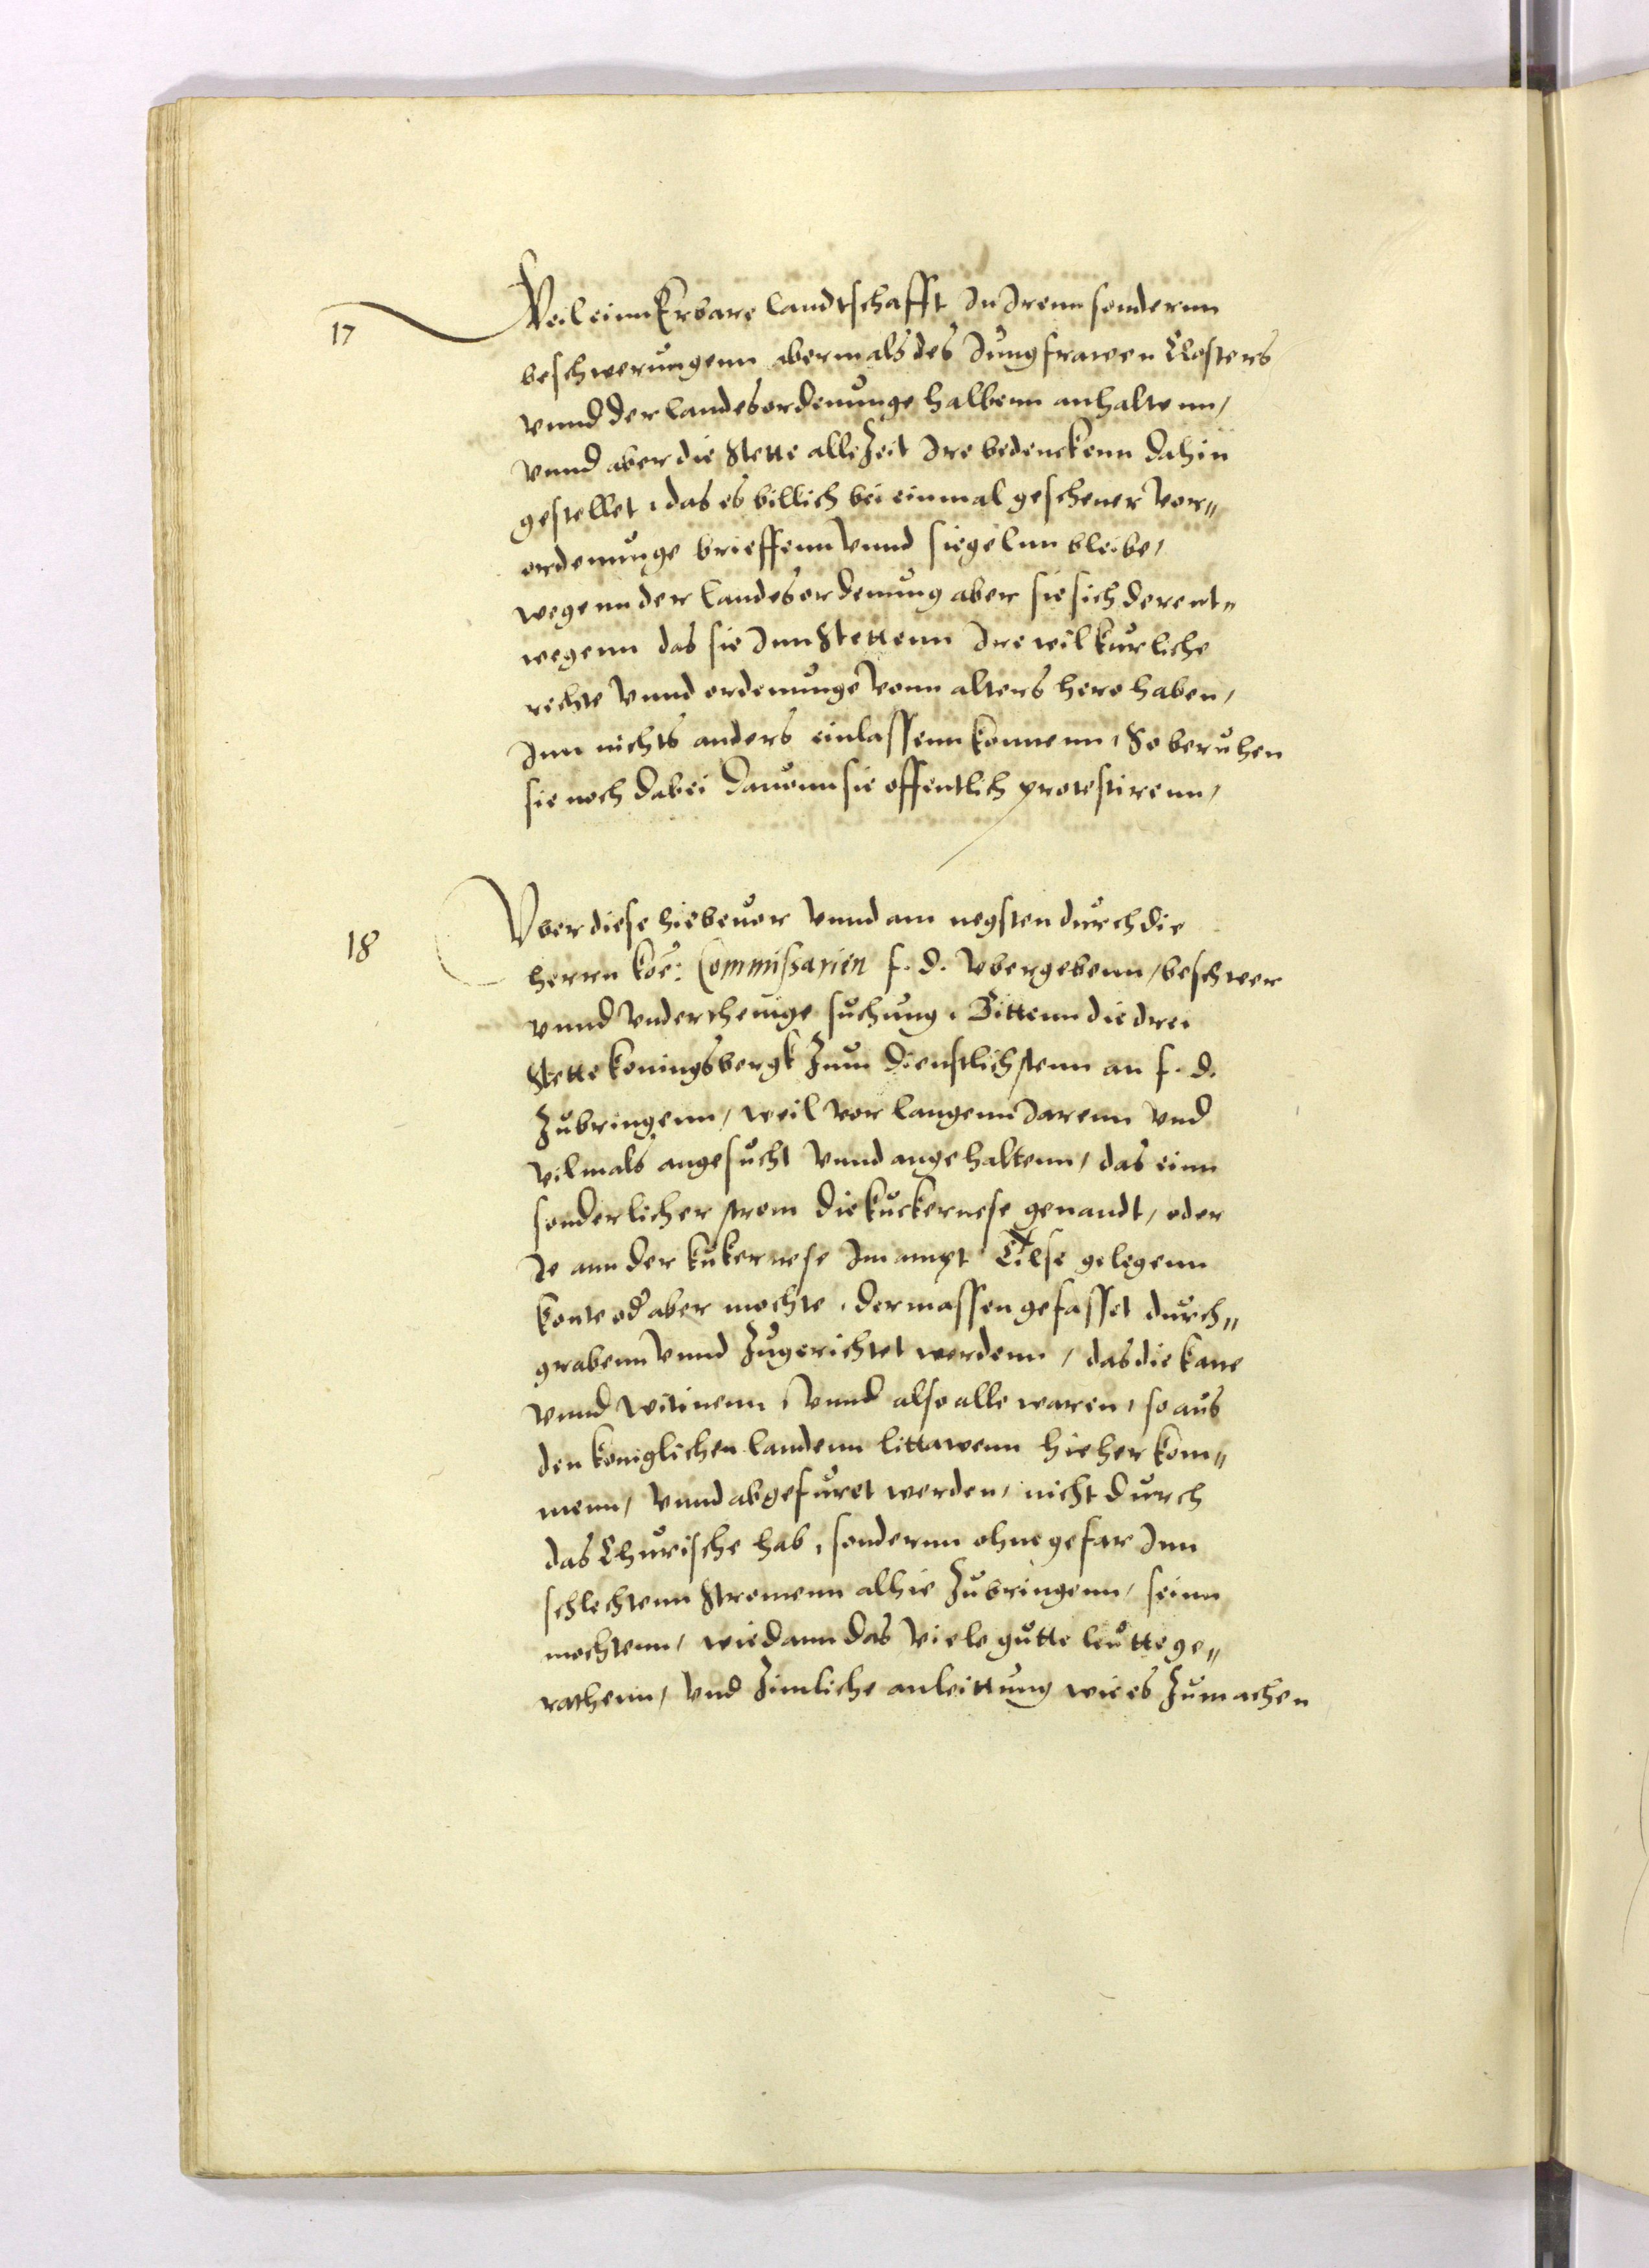 17
Weil einn Erbare landtschafft In Irenn sondernn
beschwerungenn abermals des Jungfrawen Closters
vnnd der landesordenunge halbenn anhaltenn,
vnnd aber die Stette alleZeit Ire bedenckenn dahin
gestellet, das es billich bei einmal geschener vor„
ordenunge brieffenn vnnd siegelnn bleibe,
wegenn der landesordenung aber sie sich derent„
wegenn das sie Inn Stettenn Ire wilkurliche
rechte vnnd ordenunge vonn alters hero haben,
Inn nichts anders einlassenn konnenn, So beruhen
sie noch dabei dauonn sie offentlich protestirenn,
18
Vber diese hiebeuor vnnd am negsten durch die
herrn koe: Commissarien f. d. vbergebenn, beschwer
vnnd vnderthenige suchung, Bittenn die drei
Stette koningsbergk Zum dienstlichstenn an f. d.
Zubringenn, weil vor langenn Jarenn vnd
vilmals angesucht vnnd angehaltenn, das einn
sonderlicher strom die kuckernese genandt, oder
Je ann der kukernese Im ampt Tilse gelegenn
konte oder aber mochte, dermassen gefasset durch„
grabenn vnnd Zugerichtet werdenn, das die kane
vnnd witinenn, vnnd also alle waren, so aus
den koniglichen landenn littawenn hieher kom„
menn, vnnd abgefuret werden, nicht durch
das Churische hab, sondernn ohne gefar Inn
schlechtenn Stromenn alhie Zubringenn, seinn
mochtenn, wie dann das viele gutte leutte ge„
rathenn, vnd Zimliche anleittung wie es Zumachen